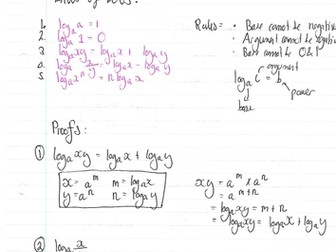 Laws of Logs:
1. logₐa = 1
2. logₐ1 = 0
3. logₐxy = logₐx + logₐy
4. logₐx/y = logₐx - logₐy
5. logₐxⁿ = n logₐx
Rules = • Base cannot be negative
• Argument cannot be negative
• Base cannot be 0 & 1
argument
logₐ c = b
power
base
Proofs:
① logₐxy = logₐx + logₐy
x = aᵐ m = logₐx
y = aⁿ n = logₐy
xy = aᵐ × aⁿ
= aᵐ⁺ⁿ
= logₐxy = m + n
= logₐxy = logₐx + logₐy
② logₐx